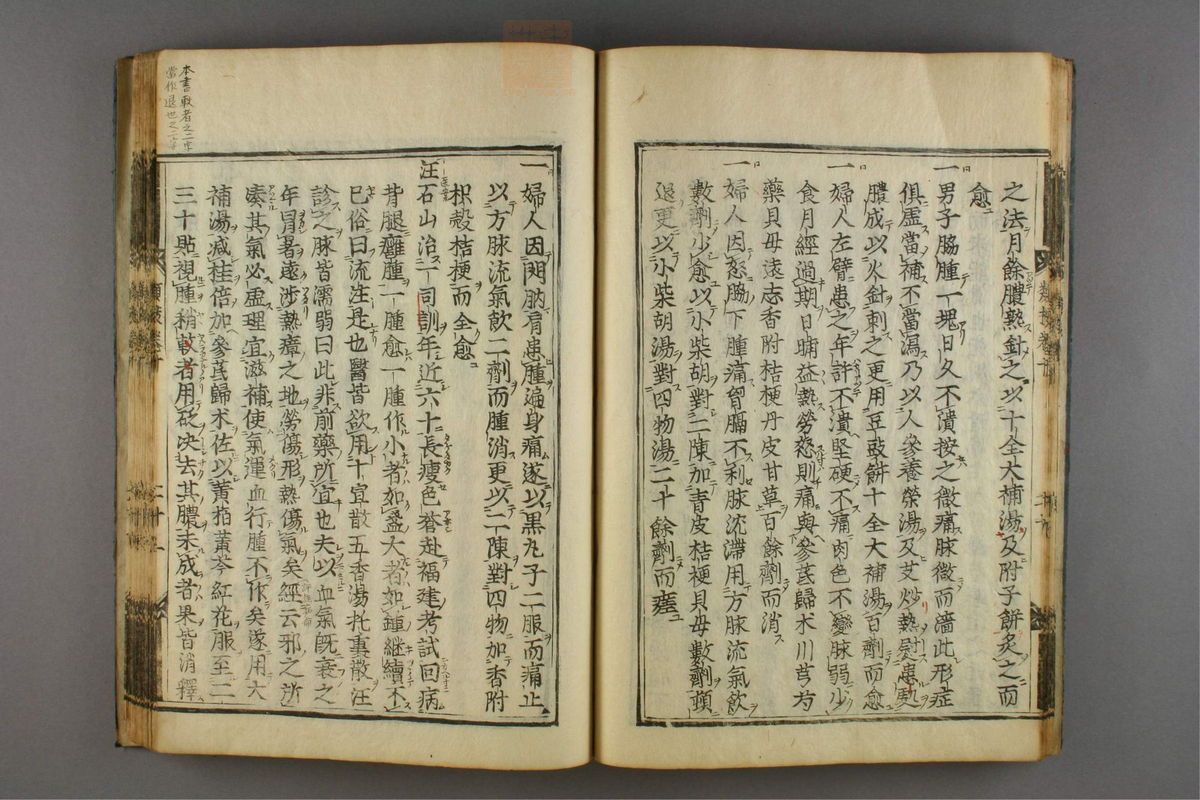 之法月餘膿熟針之以十全大補湯及附子餅灸之而
愈
一男子脇腫一塊日久不潰按之微痛脉微而濇此形症
俱虚當補不當瀉乃以人參養榮湯及艾炒熱熨患處
膿成以火針刺之更用豆豉餅十全大補湯百劑而愈
一婦人左臂患之年許不潰堅硬不痛肉色不變脉弱少
食月經過期日晡益熱勞怒則痛與參芪歸术川芎芍
藥貝母遠志香附桔梗丹皮甘草百餘劑而消
一婦人因怒脇下腫痛胷膈不利脉沈滯用方脉流氣飲
數劑少愈以小柴胡對二陳加青皮桔梗貝母數劑頓
退更以小柴胡湯對四物湯二十餘劑而痊
一婦人因閃肭肩患腫遍身痛遂以黒丸子二服而痛止
以方脉流氣飲二劑而腫消更以二陳對四物加香附
枳殻桔梗而全愈
汪石山治一司訓年近六十長瘦色蒼赴福建考試回病
背腿癰腫一腫愈一腫作小者如盞大者如鍾継續不
已俗曰流注是也醫皆欲用十宣散五香湯托裏散汪
診之脉皆濡弱曰此非前藥所宜也夫以血氣既衰之
年冒暑遠渉熱瘴之地勞傷形熱傷氣矣經云邪之所
湊其氣必虚理宜滋補使氣運血行腫不作矣遂用大
補湯减桂倍加參芪歸术佐以黄栢黄芩紅花服至二
三十貼視腫稍軟者用砭决去其膿未成者果皆消釋
本書軟者之二字
當作退也之二字